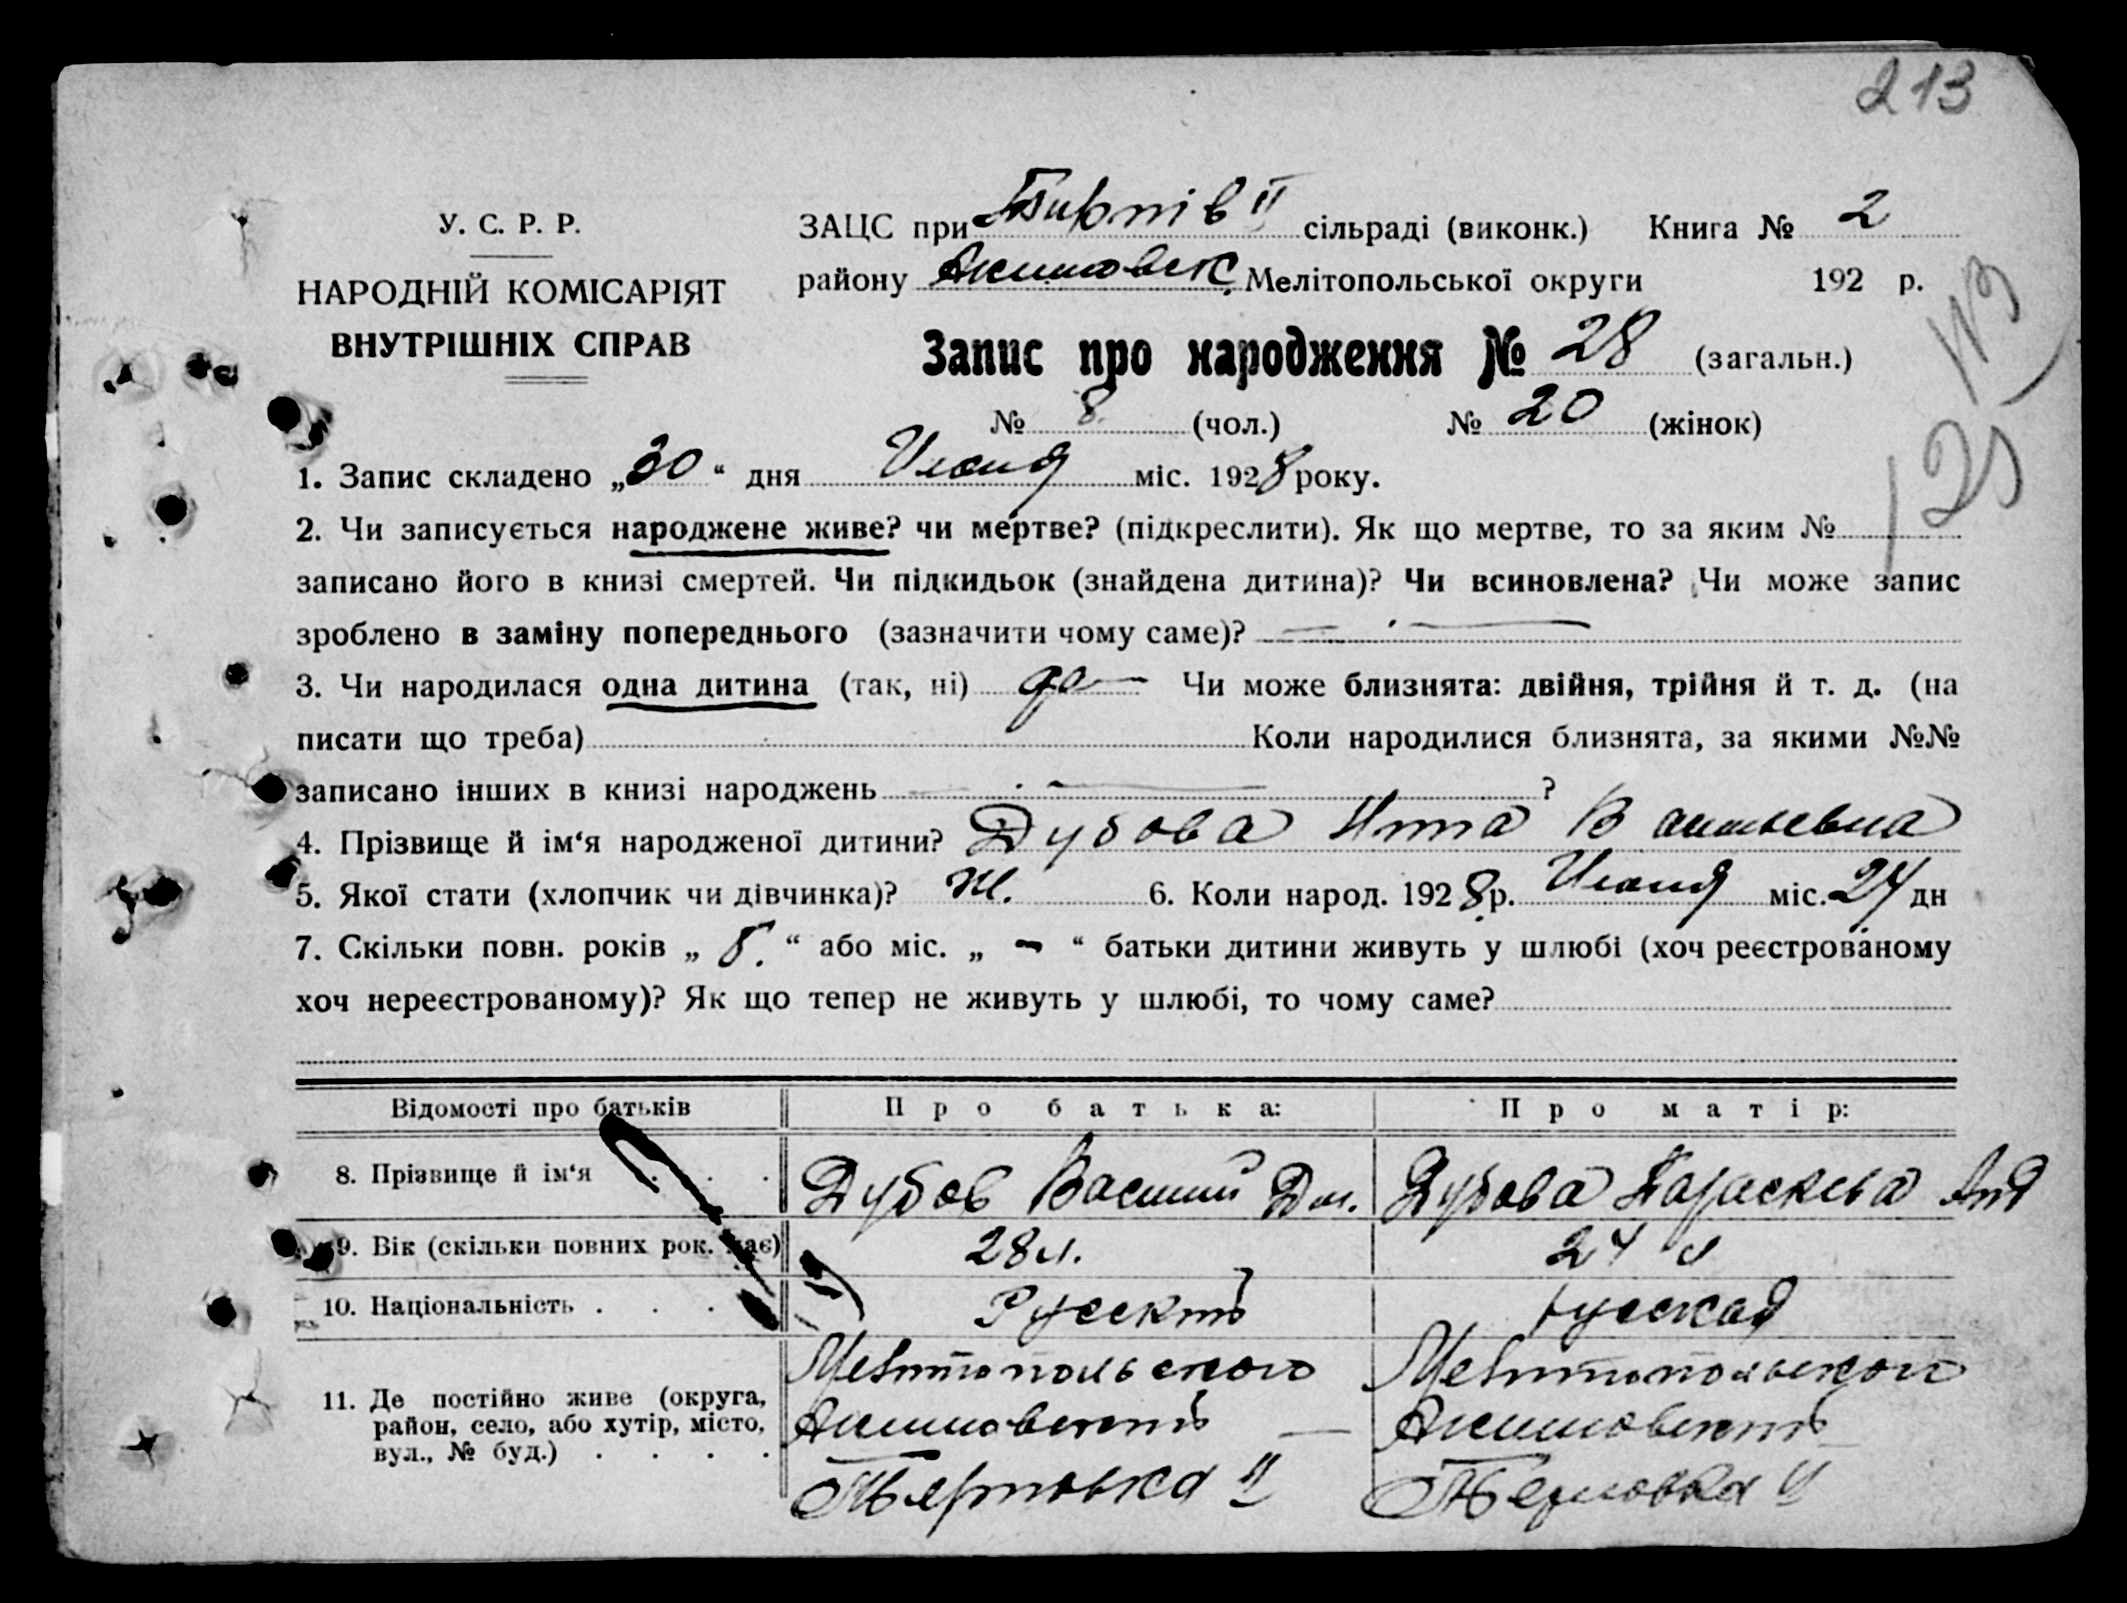 213
У. С. Р. Р.
НАРОДНІЙ КОМІСАРІЯТ
ВНУТРІШНІХ СПРАВ
ЗАЦС при II сільраді (виконк.) Книга № 2
району Акимовск. Мелітопольської округи 192 р.
Запис про народження № 28 (загальн.)
№ 8 (чол.) № 20 (жінок)
125
1. Запис складено „30“ дня Июня міс. 1928 року.
2. Чи записується народжене живе? чи мертве? (підкреслити). Як що мертве, то за яким №
записано його в книзі смертей. Чи підкидьок (знайдена дитина)? Чи всиновлена? Чи може запис
зроблено в заміну попереднього (зазначити чому саме)? —
3. Чи народилася одна дитина (так, ні) да — Чи може близнята: двійня, трійня й т. д. (на
писати що треба) Коли народилися близнята, за якими №№
записано інших в книзі народжень — ?
4. Прізвище й ім‘я народженої дитини? Дубова
5. Якої стати (хлопчик чи дівчинка)? ж. 6. Коли народ. 1928 р. Июня міс. 24 дн
7. Скільки повн. років „ 5. “ або міс. „ - “ батьки дитини живуть у шлюбі (хоч реєстрованому
хоч нереєстрованому)? Як що тепер не живуть у шлюбі, то чому саме?
Відомості про батьків Про батька: Про матір:
8. Прізвище й ім‘я . . . Дубов Василий Дм. Дубова Параскева Анд
9. Вік (скільки повних рок. має) 28 л. 24 л
10. Національність . . . Русский русская
11. Де постійно живе (округа,
район, село, або хутір, місто,
вул., № буд.) . . . .
Мелитопольского Мелитопольского
Акимовский — Акимовский
II II